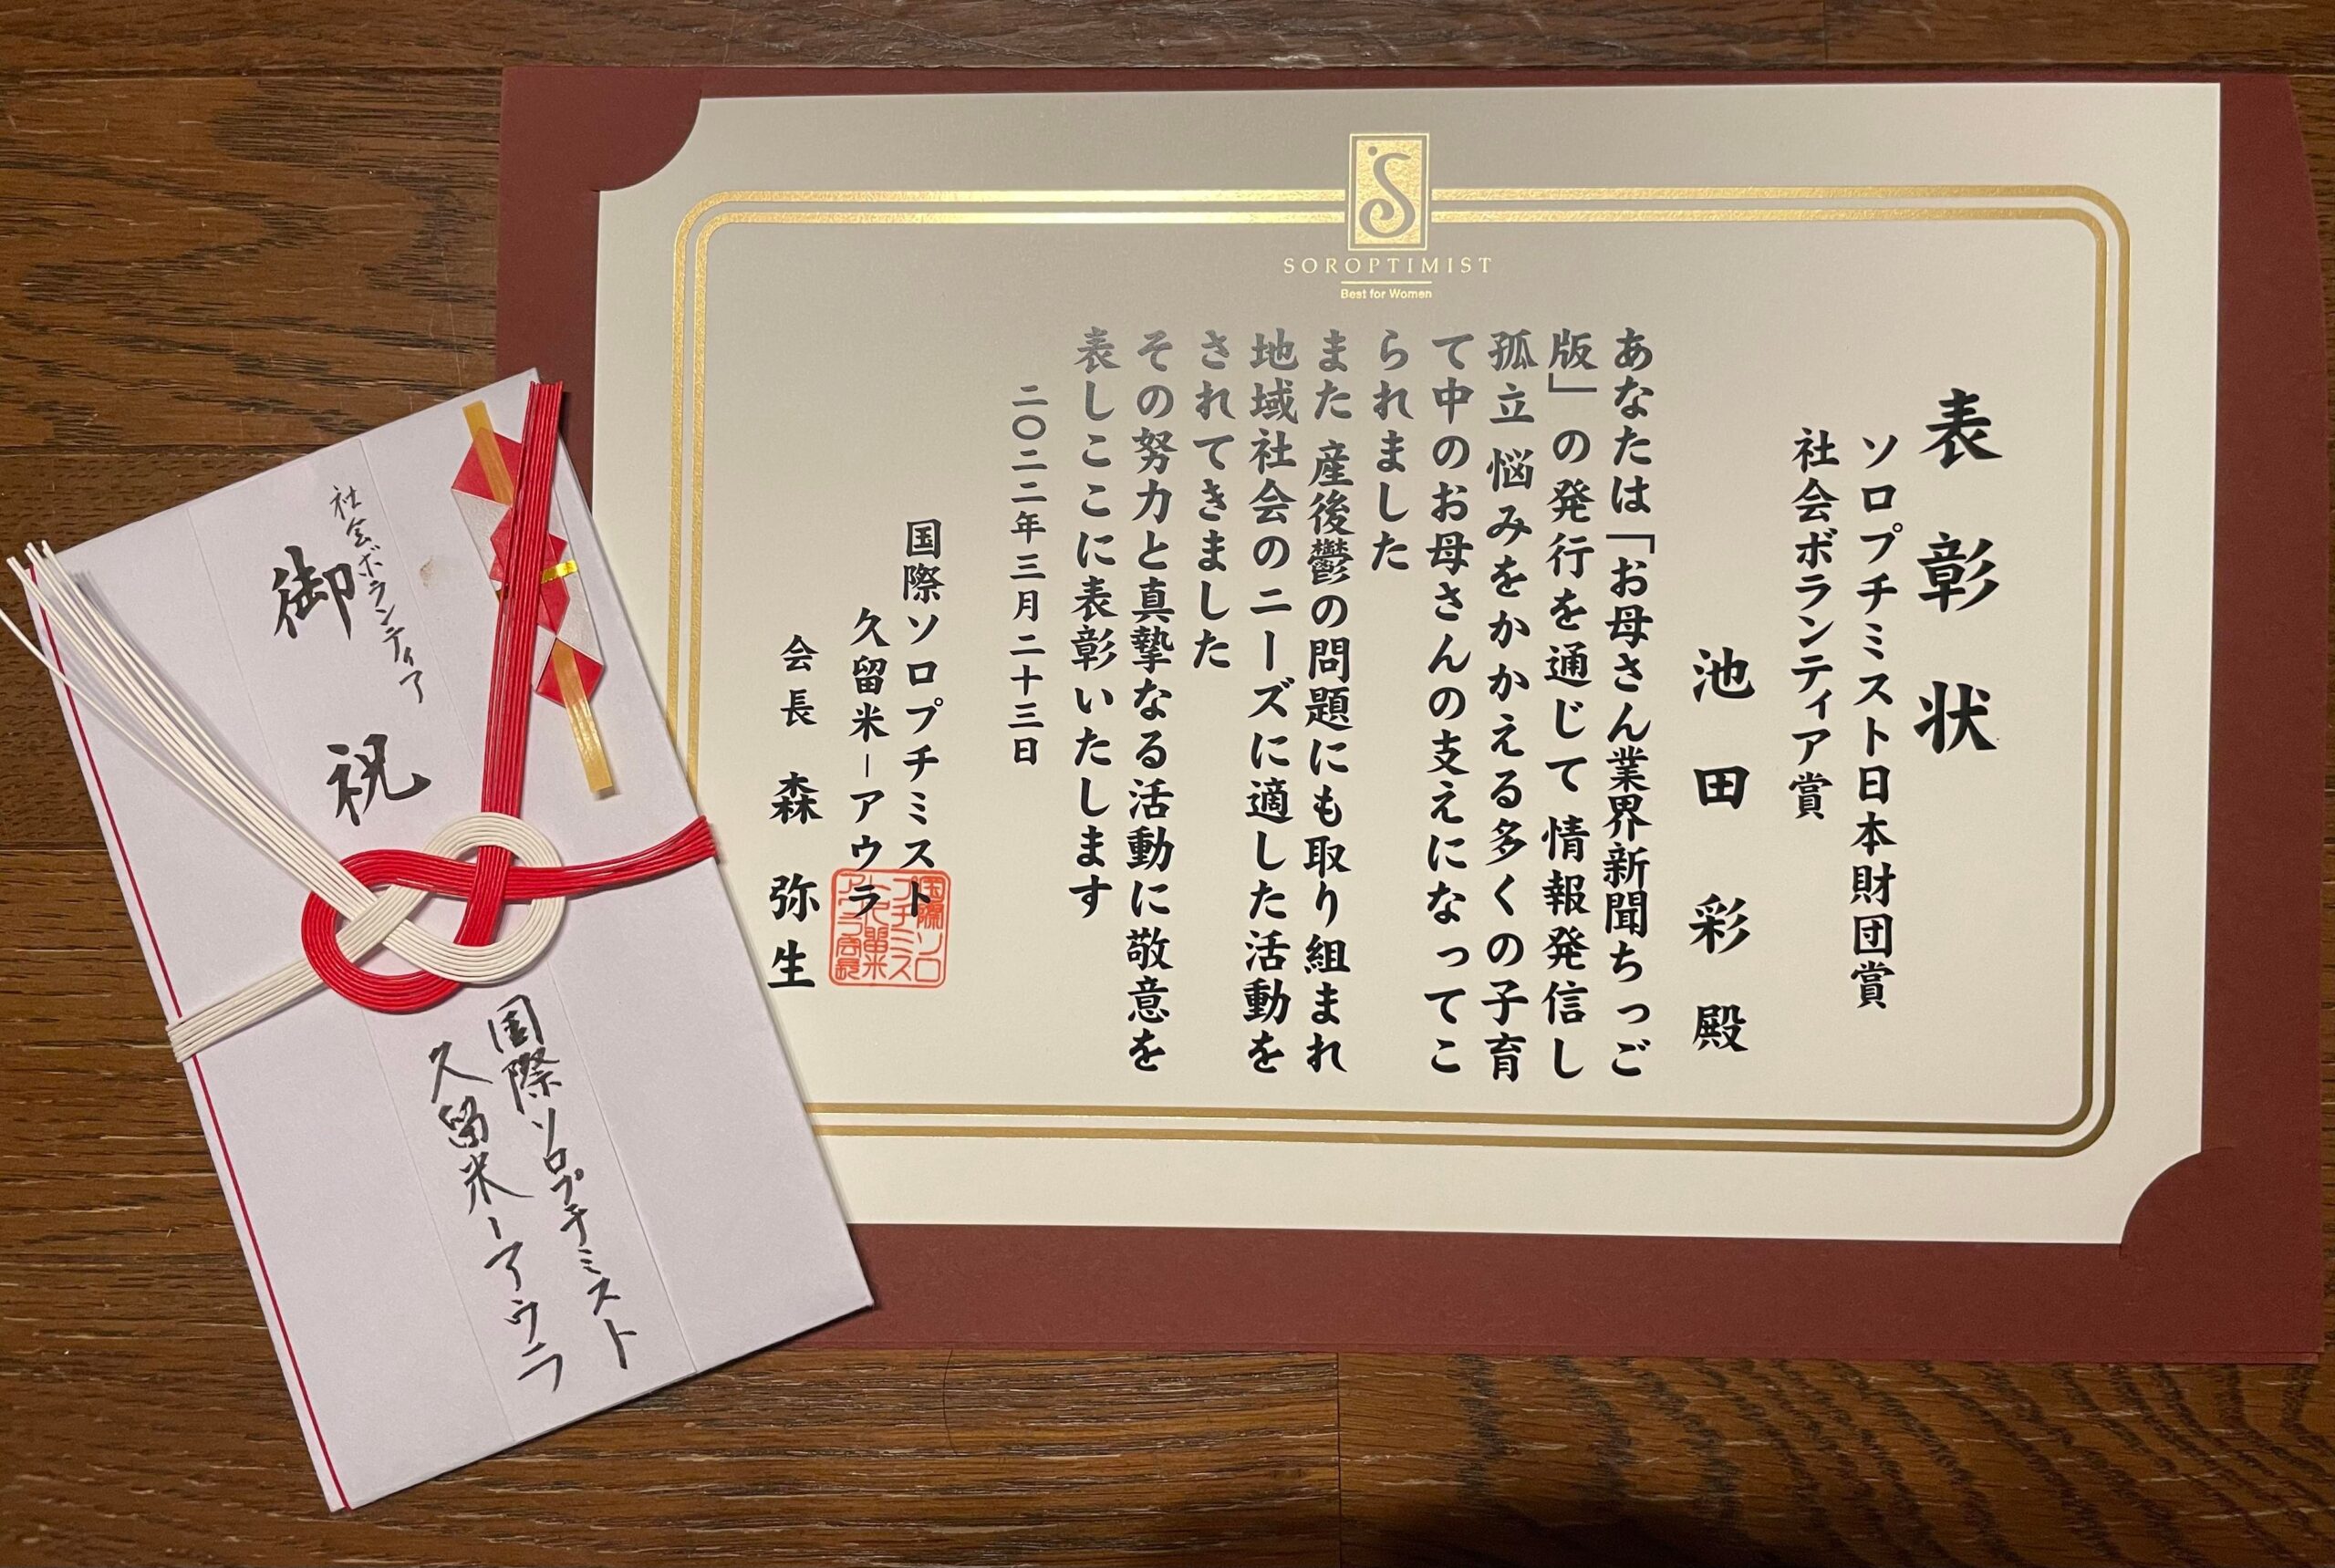 SOROPTIMIST
Best for Women
表彰状
ソロプチミスト日本財団賞
社会ボランティア賞
池田彩殿
あなたは「お母さん業界新聞ちっご
版」の発行を通じて 情報発信し
孤立 悩みをかかえる多くの子育
て中のお母さんの支えになってこ
られました
また 産後鬱の問題にも取り組まれ
地域社会のニーズに適した活動を
されてきました
その努力と真摯なる活動に敬意を
表しここに表彰いたします
二〇二二年三月二十三日
国際ソロプチミスト
久留米ーアウラ
会長 森 弥生
国際ソロ
プチミス
ト久留米
アウラ会長
社会ボランティア
御祝
国際ソロプチミスト
久留米ーアウラ